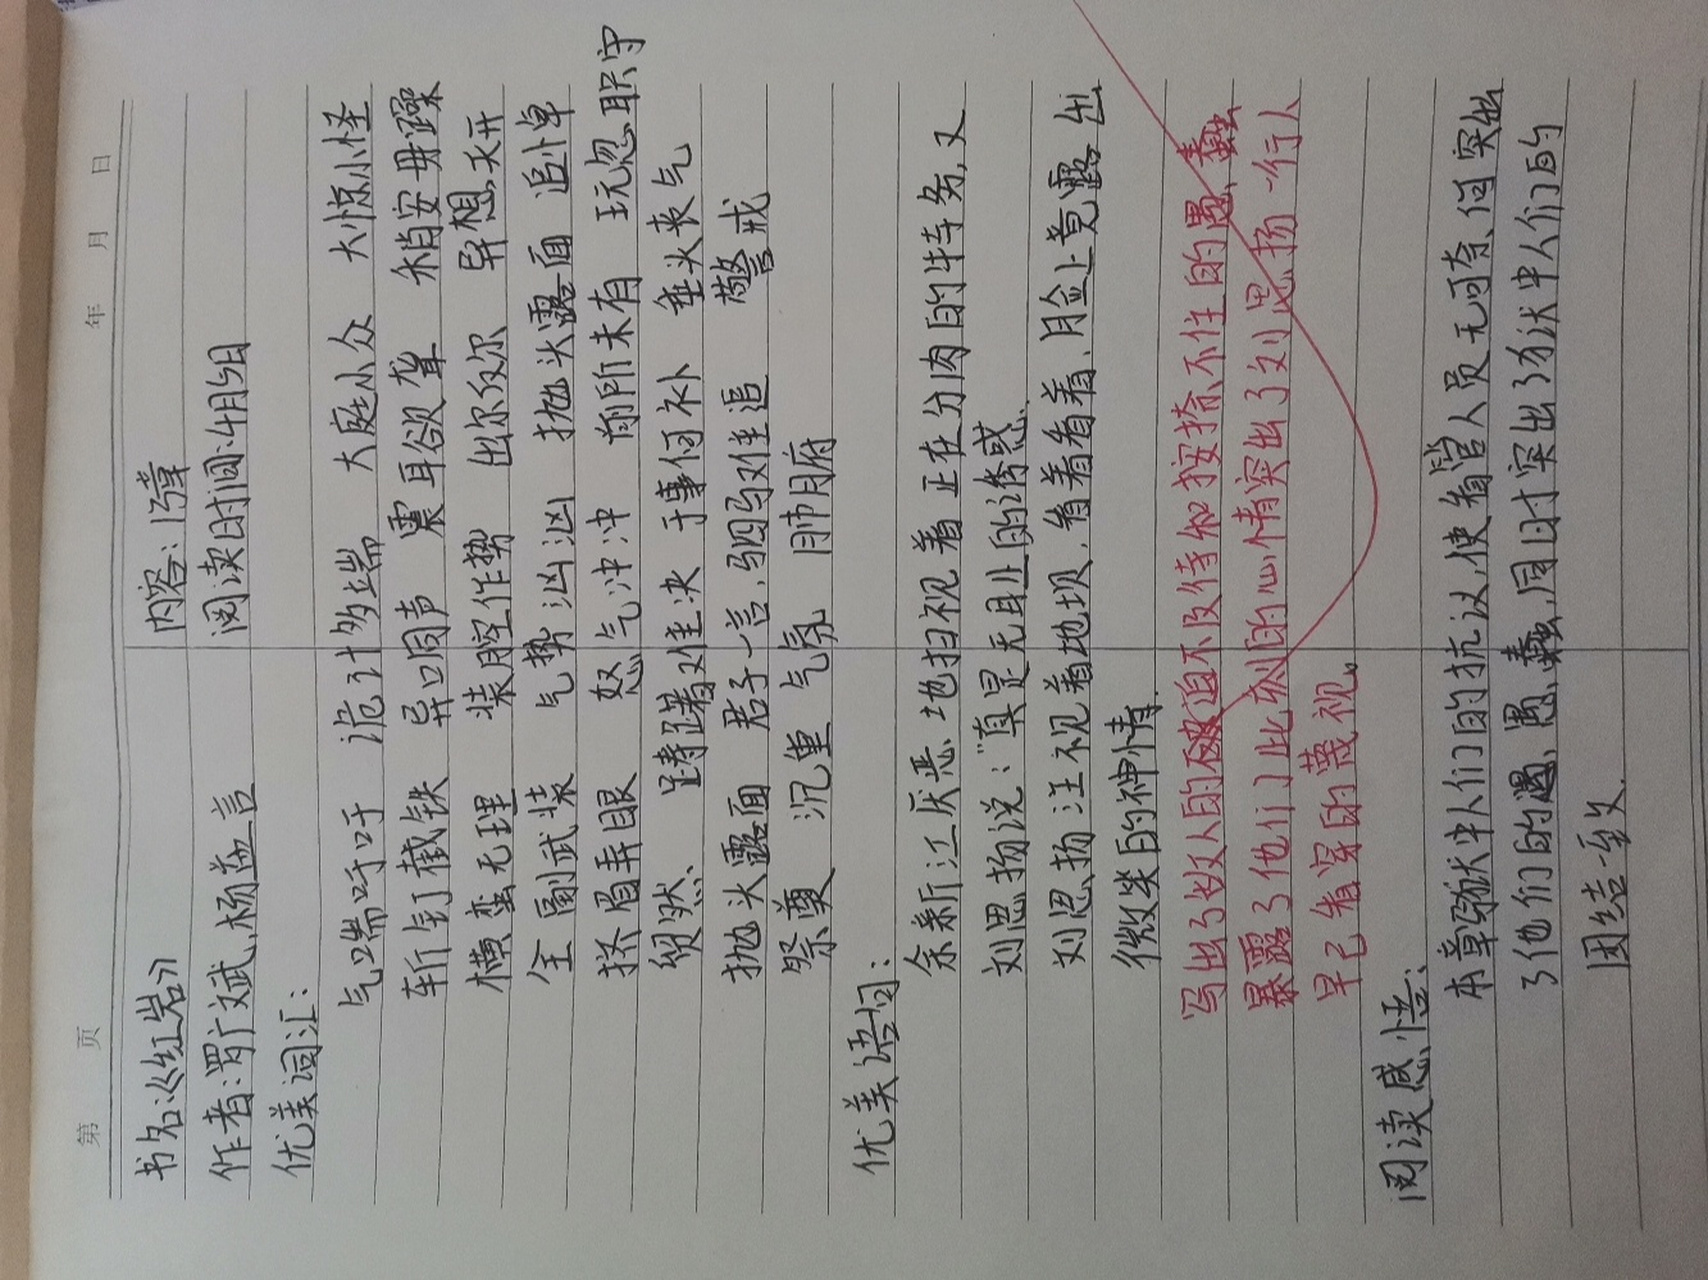 第 页 年 月 日
书名:《红岩》 内容:15章
作者:罗广斌,杨益言 阅读时间:4月5日
优美词汇:
气喘吁吁 诡计多端 大庭小众 大惊小怪
斩钉截铁 异口同声 震耳欲聋 稍安毋躁
横蛮无理 装腔作势 出尔反尔 异想天开
全副武装 气势汹汹 抛头露面 追悼
挤眉弄眼 怒气冲冲 前所未有 玩忽职守
贸然、 踌躇难决 于事何补 垂头丧气
抛头露面 君子一言,驷马难追 警戒
祭奠 沉重 气氛 肺腑
优美语句:
余新江厌恶地扫视着正在分肉的特务,又
刘思扬说:"真是无耻的诱惑.
刘思扬汪视着地坝,看着看着,脸上竟露出
微笑的神情.
写出了敌人的迫不及待和按捺不住的愚蠢
暴露了他们此刻的心情突出了刘思扬一行人
早已看穿的蔑视.
阅读感悟:
本章狱中人们的抗议,使看管人员无可奈何突出
了他们的愚蠢,同时突出了狱中人们的
团结一致.